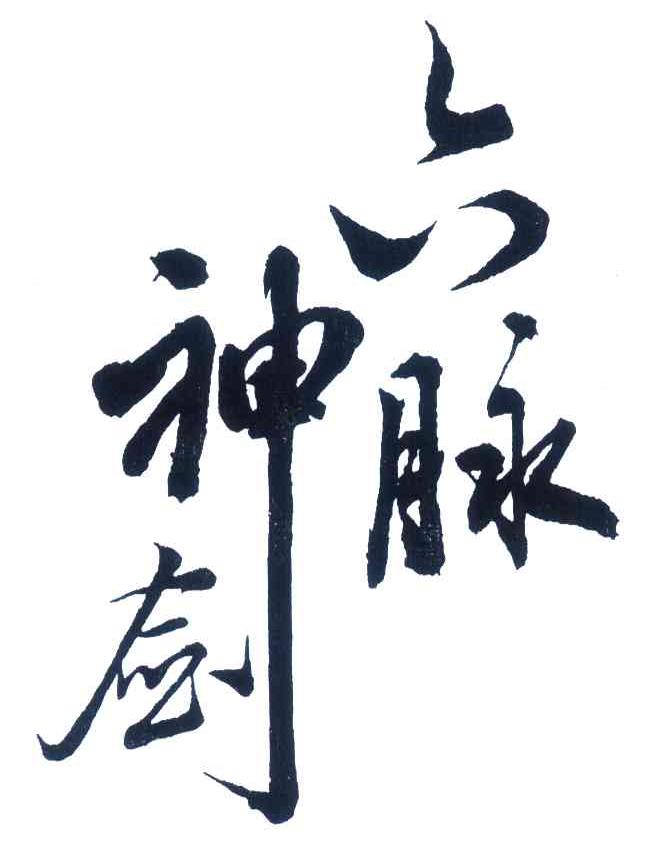 六脉
神剑